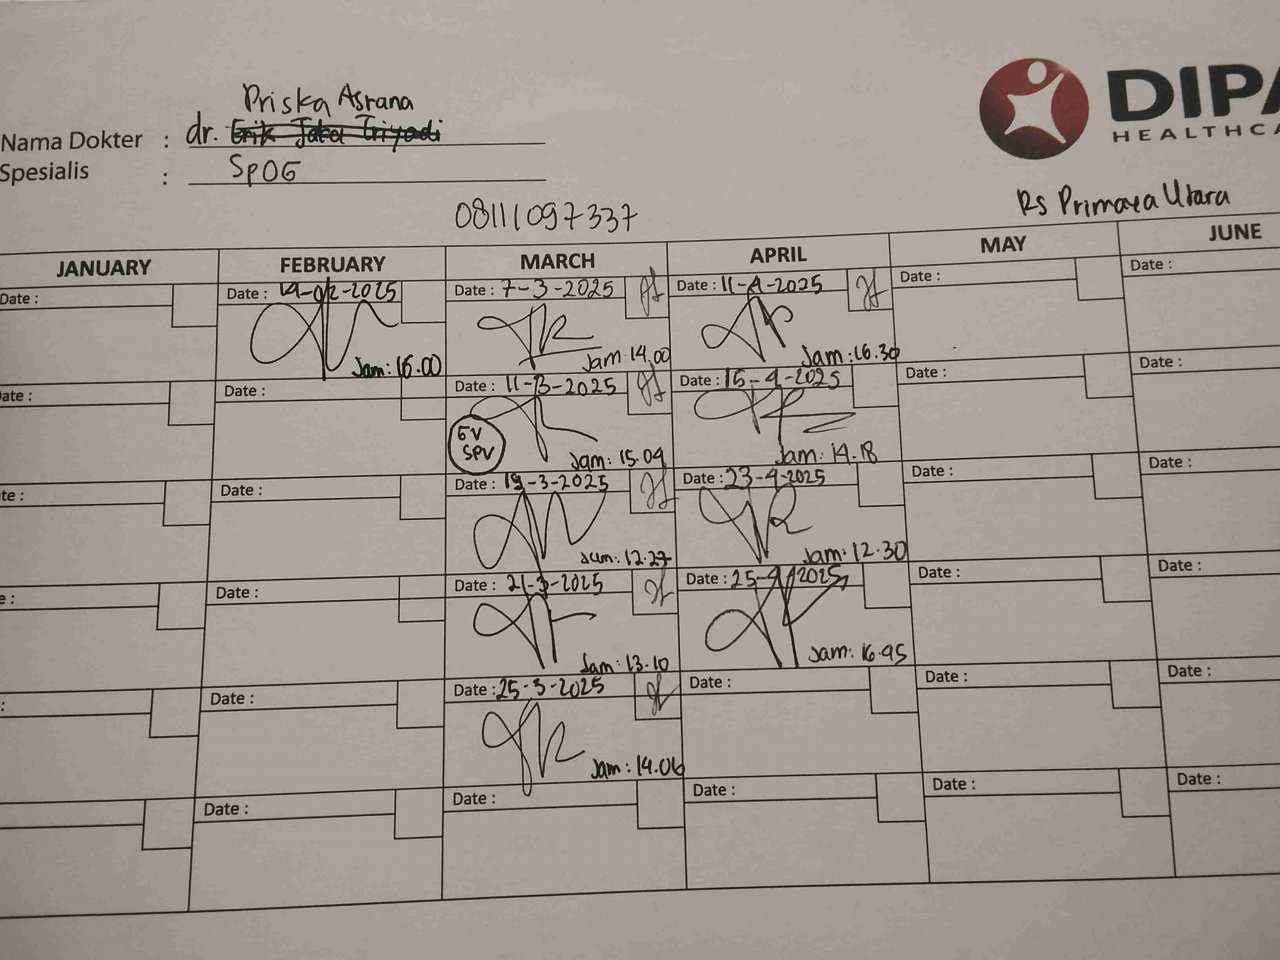 Priska Asrana
Nama Dokter : dr. Erik Jaka Triyadi
Spesialis : SpOG
DIPA
HEALTHCA
08111097337
RS Primaya Utara
JANUARY FEBRUARY MARCH APRIL MAY JUNE
Date : Date : 19-02-2025 Date : 7-3-2025 Date : 11-4-2025 Date : Date :
Jam: 16.00 Jam: 14.00 Jam: 16.30
ate : Date : Date : 11-3-2025 Date : 15-4-2025 Date : Date :
SPV
Jam: 15.04 Jam: 14.18
te : Date : Date : 19-3-2025 Date : 23-4-2025 Date : Date :
Jam: 12.27 Jam: 12.30
e : Date : Date : 21-3-2025 Date : 25-4-2025 Date : Date :
Jam: 13.10 Jam: 16.45
: Date : Date : 25-3-2025 Date : Date : Date :
Jam: 14.06
Date : Date : Date : Date : Date :